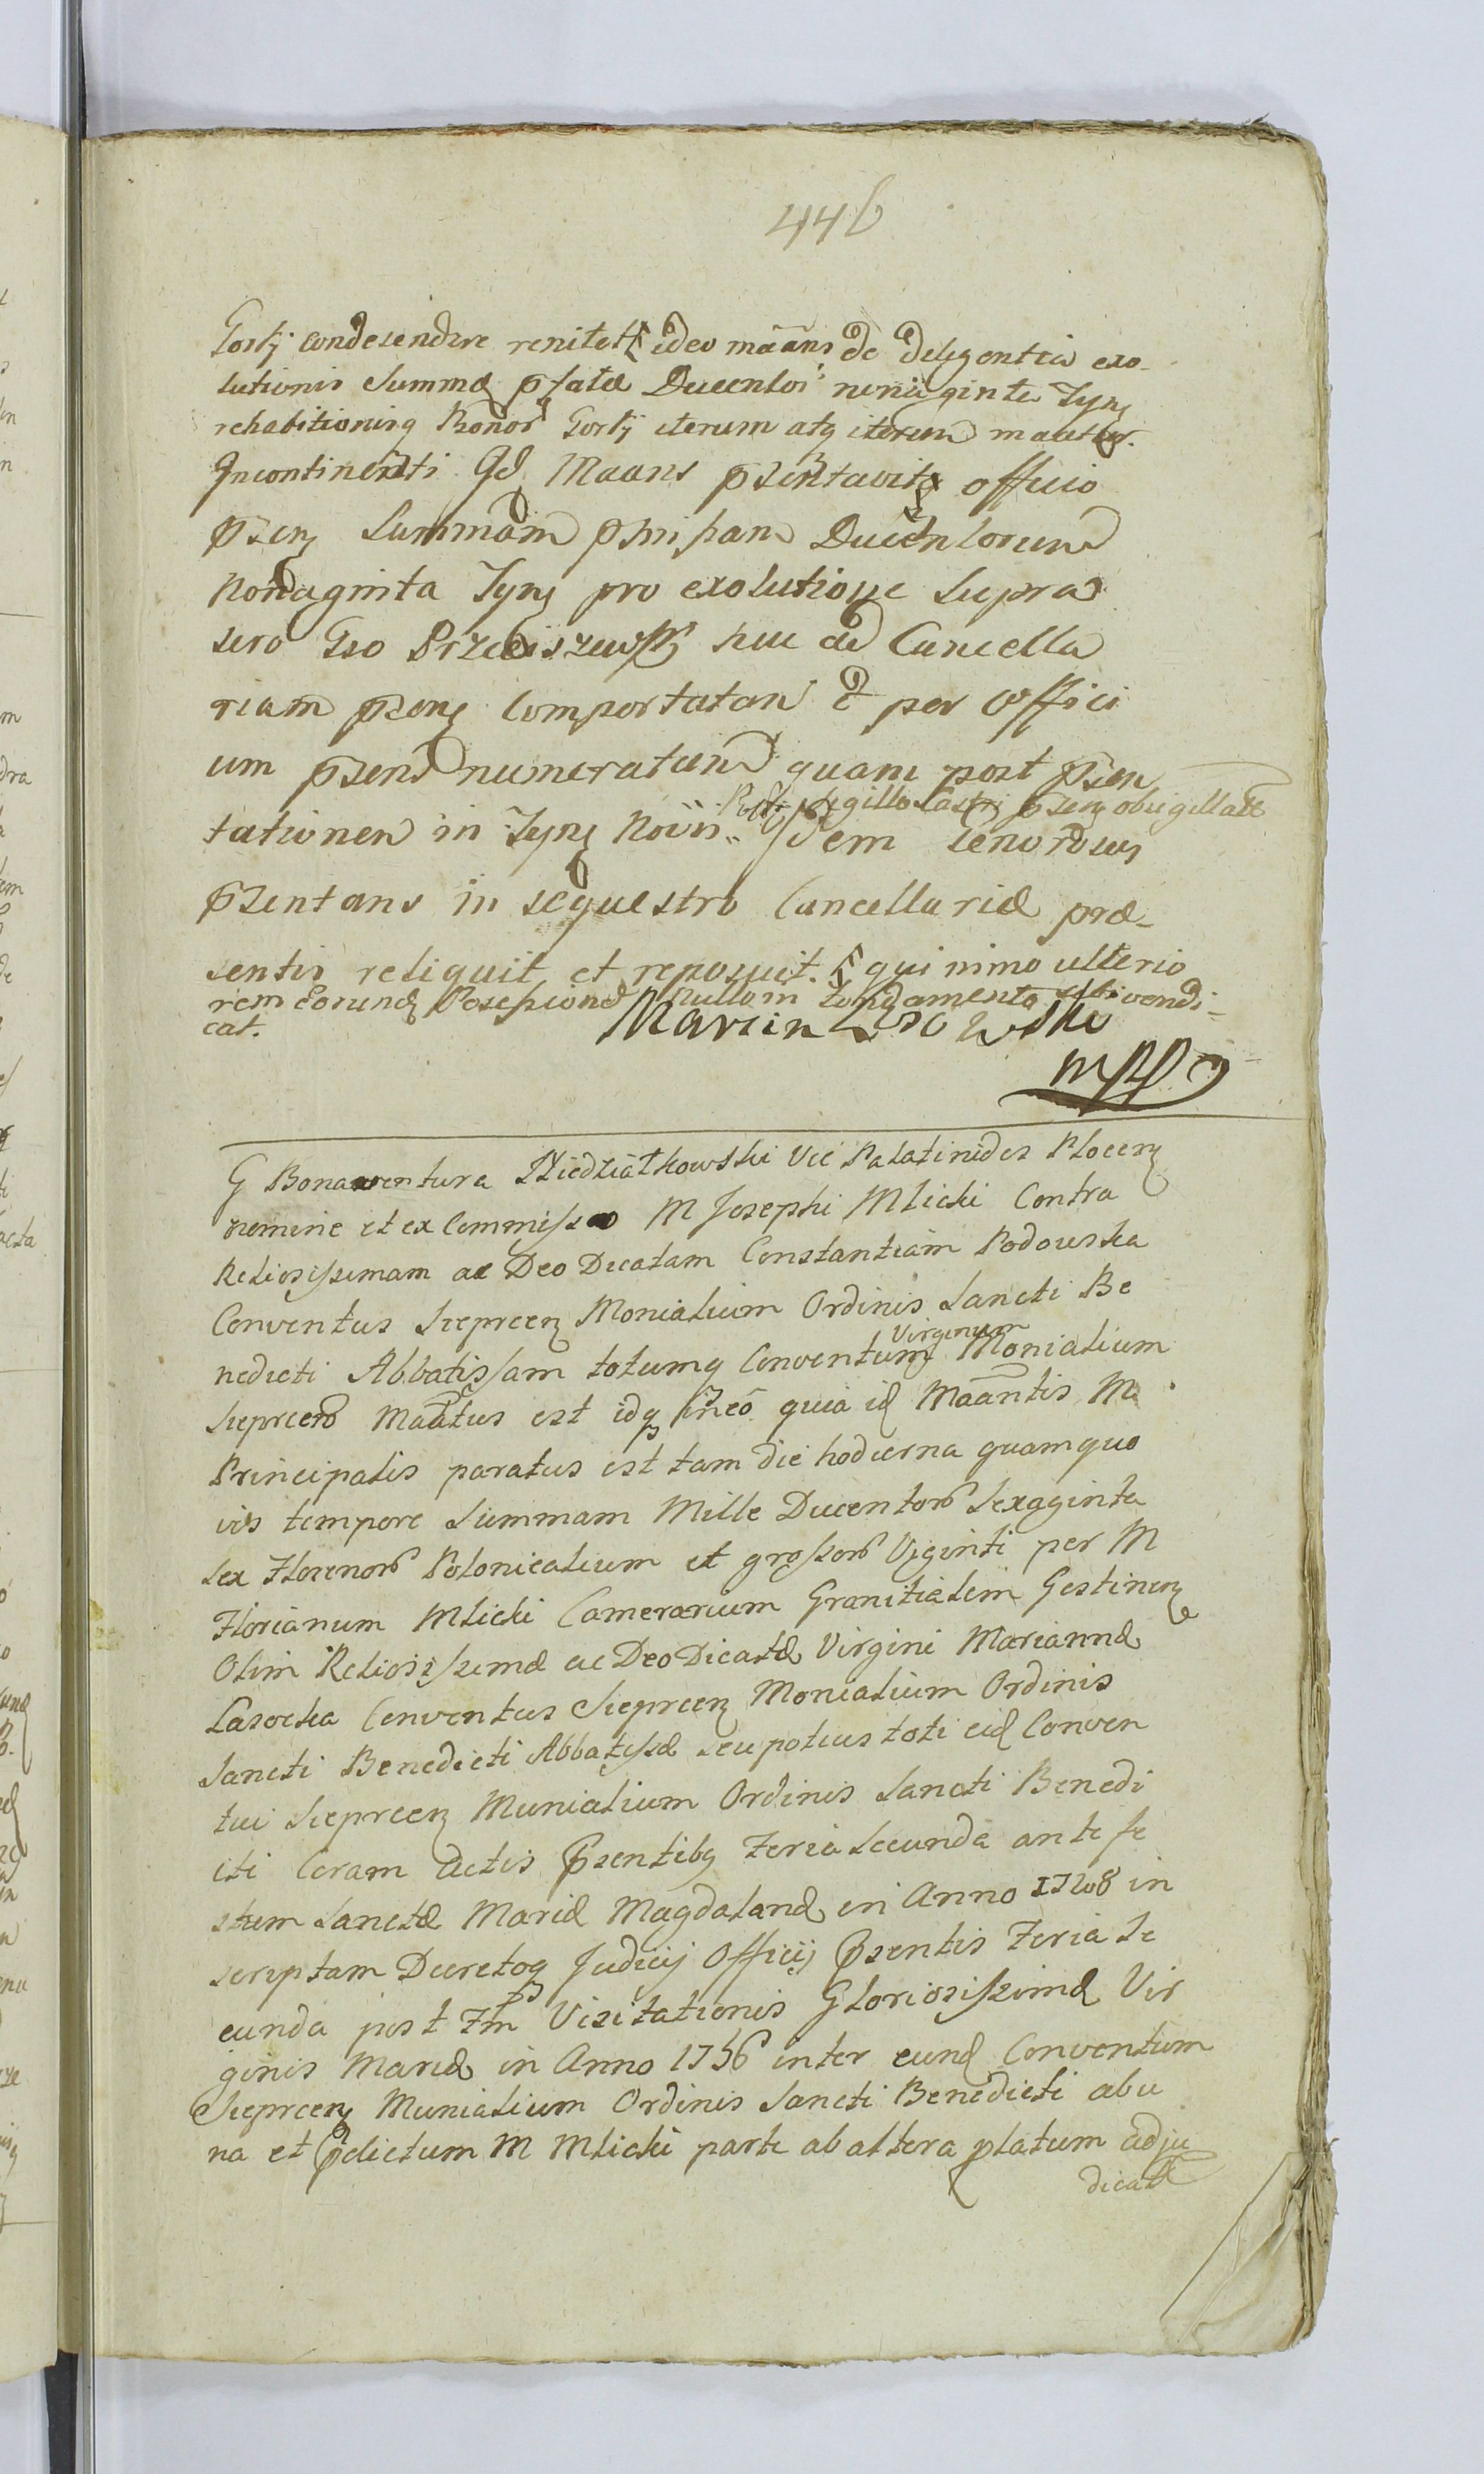 446
condescendere renitet ideo mãans de diligentia exo-
lutionis Summæ pfatæ Ducentor nonaginta Tynf
rehabitionisq Bonor iterum atq iterum
Incontinenti Gd Maans psentavit officio
psen Summam Ducentorum
Nonaginta Tynf pro exolutione Supra
sero Gso huc ad Cancella
riam psen Comportatam & per Offici
um psens numeratam quam post psen
sigillo Castri psen obsigillatæ
tationem in Tynf Idem Generosus
psentans in sequestro Cancellariæ præ-
sentis reliquit et reposuit. qui nimo ulterio
rem Eorund Possessionẽ nullo in fundamento sibi vendi-
cat.
Marcin
mpp
G Bonawentura Niedziałkowski Vic Palatinides Plocen
nomine et ex Commisso M Josephi Mlicki Contra
Religiosissimam ac Deo Dicatam Constantiam Podowska
Conventus Sieprcen Monialium Ordinis Sancti Be
nedicti Abbatissam totumq Conventum Virginum Monialium
Sieprcen Maatus est idq in eo quia id Maantis M
Principalis paratus est tam die hodierna quam quo
vis tempore Summam Mille Ducentor Sexaginta
sex Florenor Polonicalium et grossor Viginti per M
Florianum Mlicki Camerarium Granitialem Gostinen
Olim Religiosissimæ ac Deo Dicatæ Virgini Mariannæ
Lasocka Conventus Sieprcen Monialium Ordinis
Sancti Benedicti Abbatissæ seu potius toti eid Conven
tui Sieprcen Munialium Ordinis Sancti Benedi
cti Coram Actis Psentibq Feria Secunda ante fe
stum Sanctæ Mariæ Magdalanæ in Anno in
scriptam Decretoq Judicij Officij Psentis Feria Se
cunda post Ftm Visitationis Gloriosissimæ Vir
ginis Mariæ in Anno 1756 inter eund Conventum
Sieprcen Munialium Ordinis Sancti Benedicti ab u
na et Pdictum M Mlicki parte ab altera platum adju
dicat